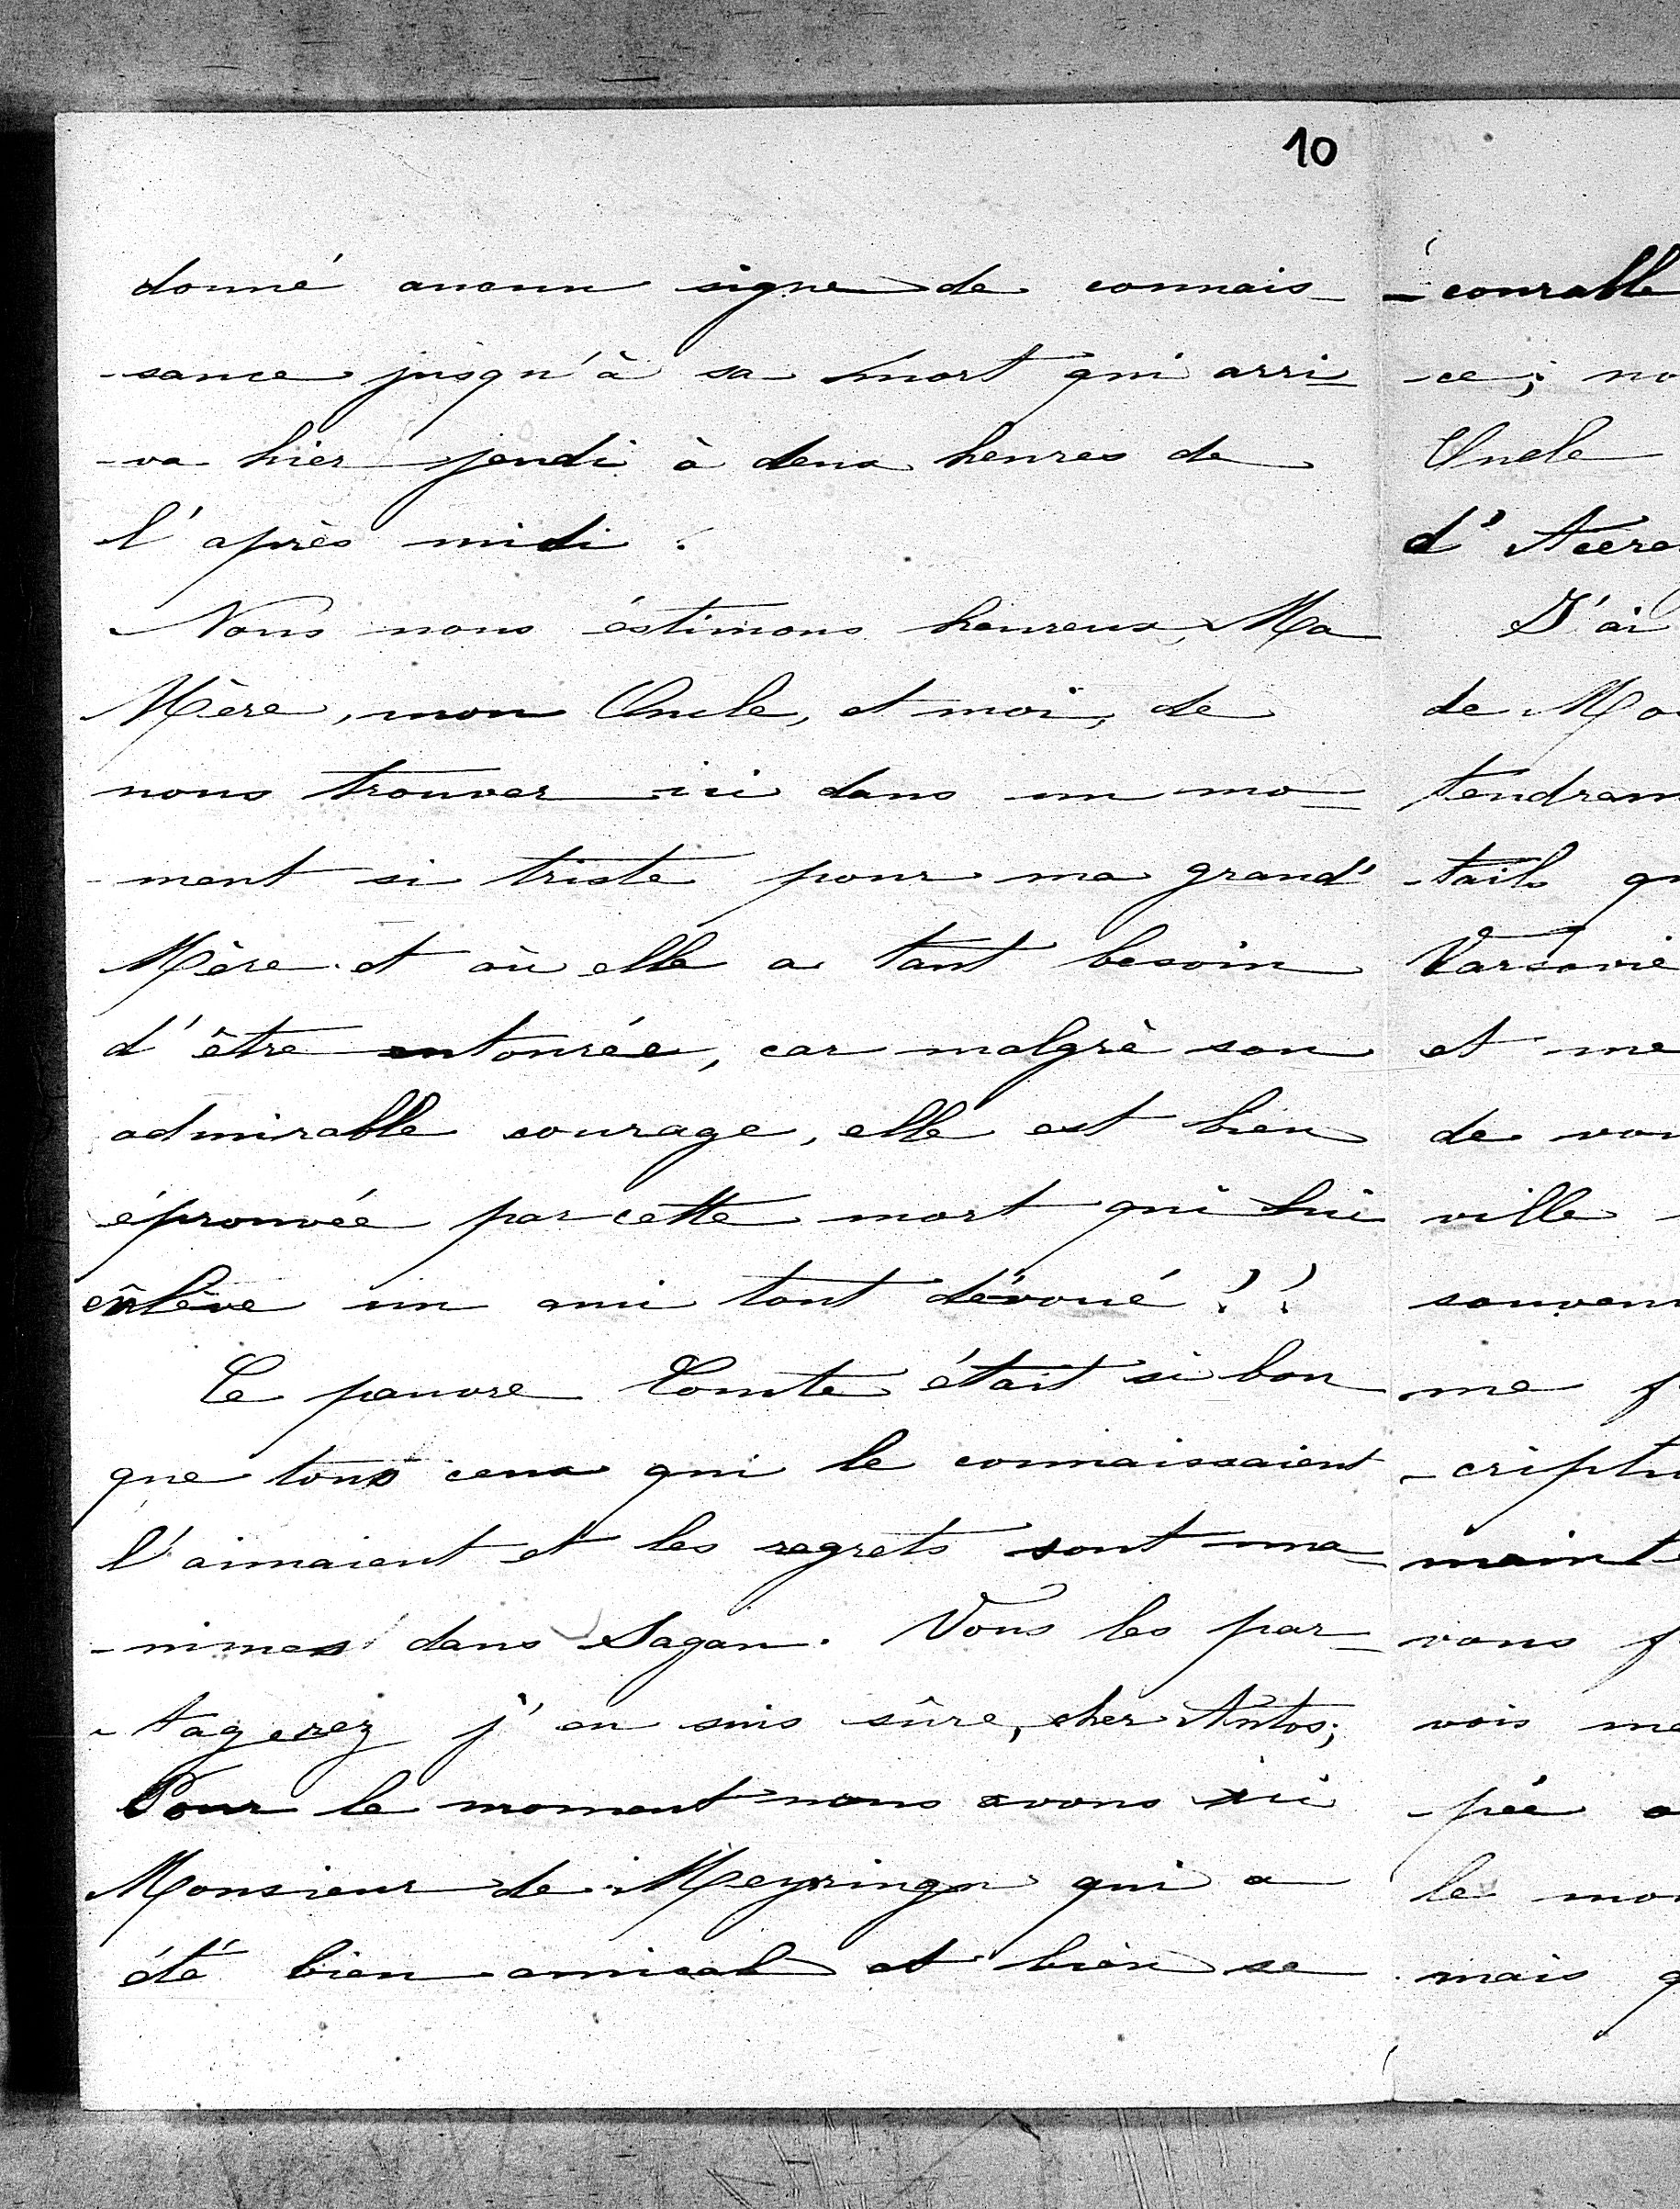 10
donné aucun signe de connais-
-sance jusqu'à sa mort qui arri-
-va hier jeudi à deux heures de
l'après midi.
Nous nous éstimons heureux, Ma
Mère, mon Oncle, et moi, de
nous trouver ici dans un mo-
-ment si triste pour ma grand'
Mère et où elle a tant besoin
d'être entourée, car malgrè son
admirable courage, elle est bien
éprouvée par cette mort qui lui
enlève un ami tout dévoué!!
Ce pauvre Comte était si bon
que tous ceux qui le connaissaient
l'aimaient et les regrets sont una-
-nimes dans Sagan. Vous les par-
-tagerez j'en suis sûre, cher Antos;
Pour le moment nous avons ici
Monsieur de qui a
été bien amical et bien se
-courable
-ce; no
Oncle
d'
J'ai
de Ma
tendrem
-tails qu
Varsovie
et me
de vou
ville
souven
me f
-criptu
mainte
vous f
vois me
-pée a
le mo
mais q